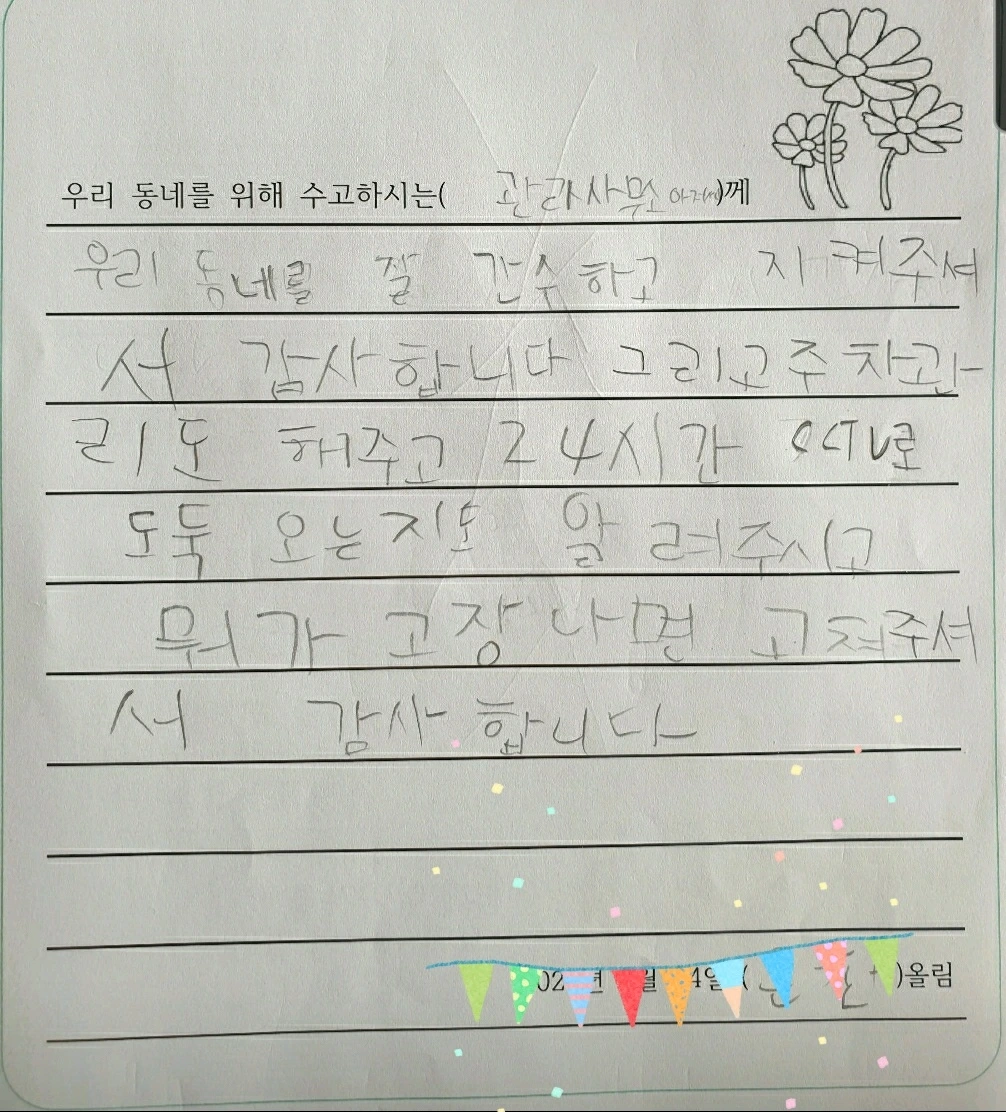 우리 동네를 위해 수고하시는( 관리사무소 아저씨)께
우리 동네를 잘 간수하고 지켜주셔
서 감사합니다 그리고 주차관
리도 해주고 24시간 CCTV로
도둑 오는지도 알려주시고
뭐가 고장나면 고쳐주셔
서 감사합니다
02 년 월 4일 ( )올림